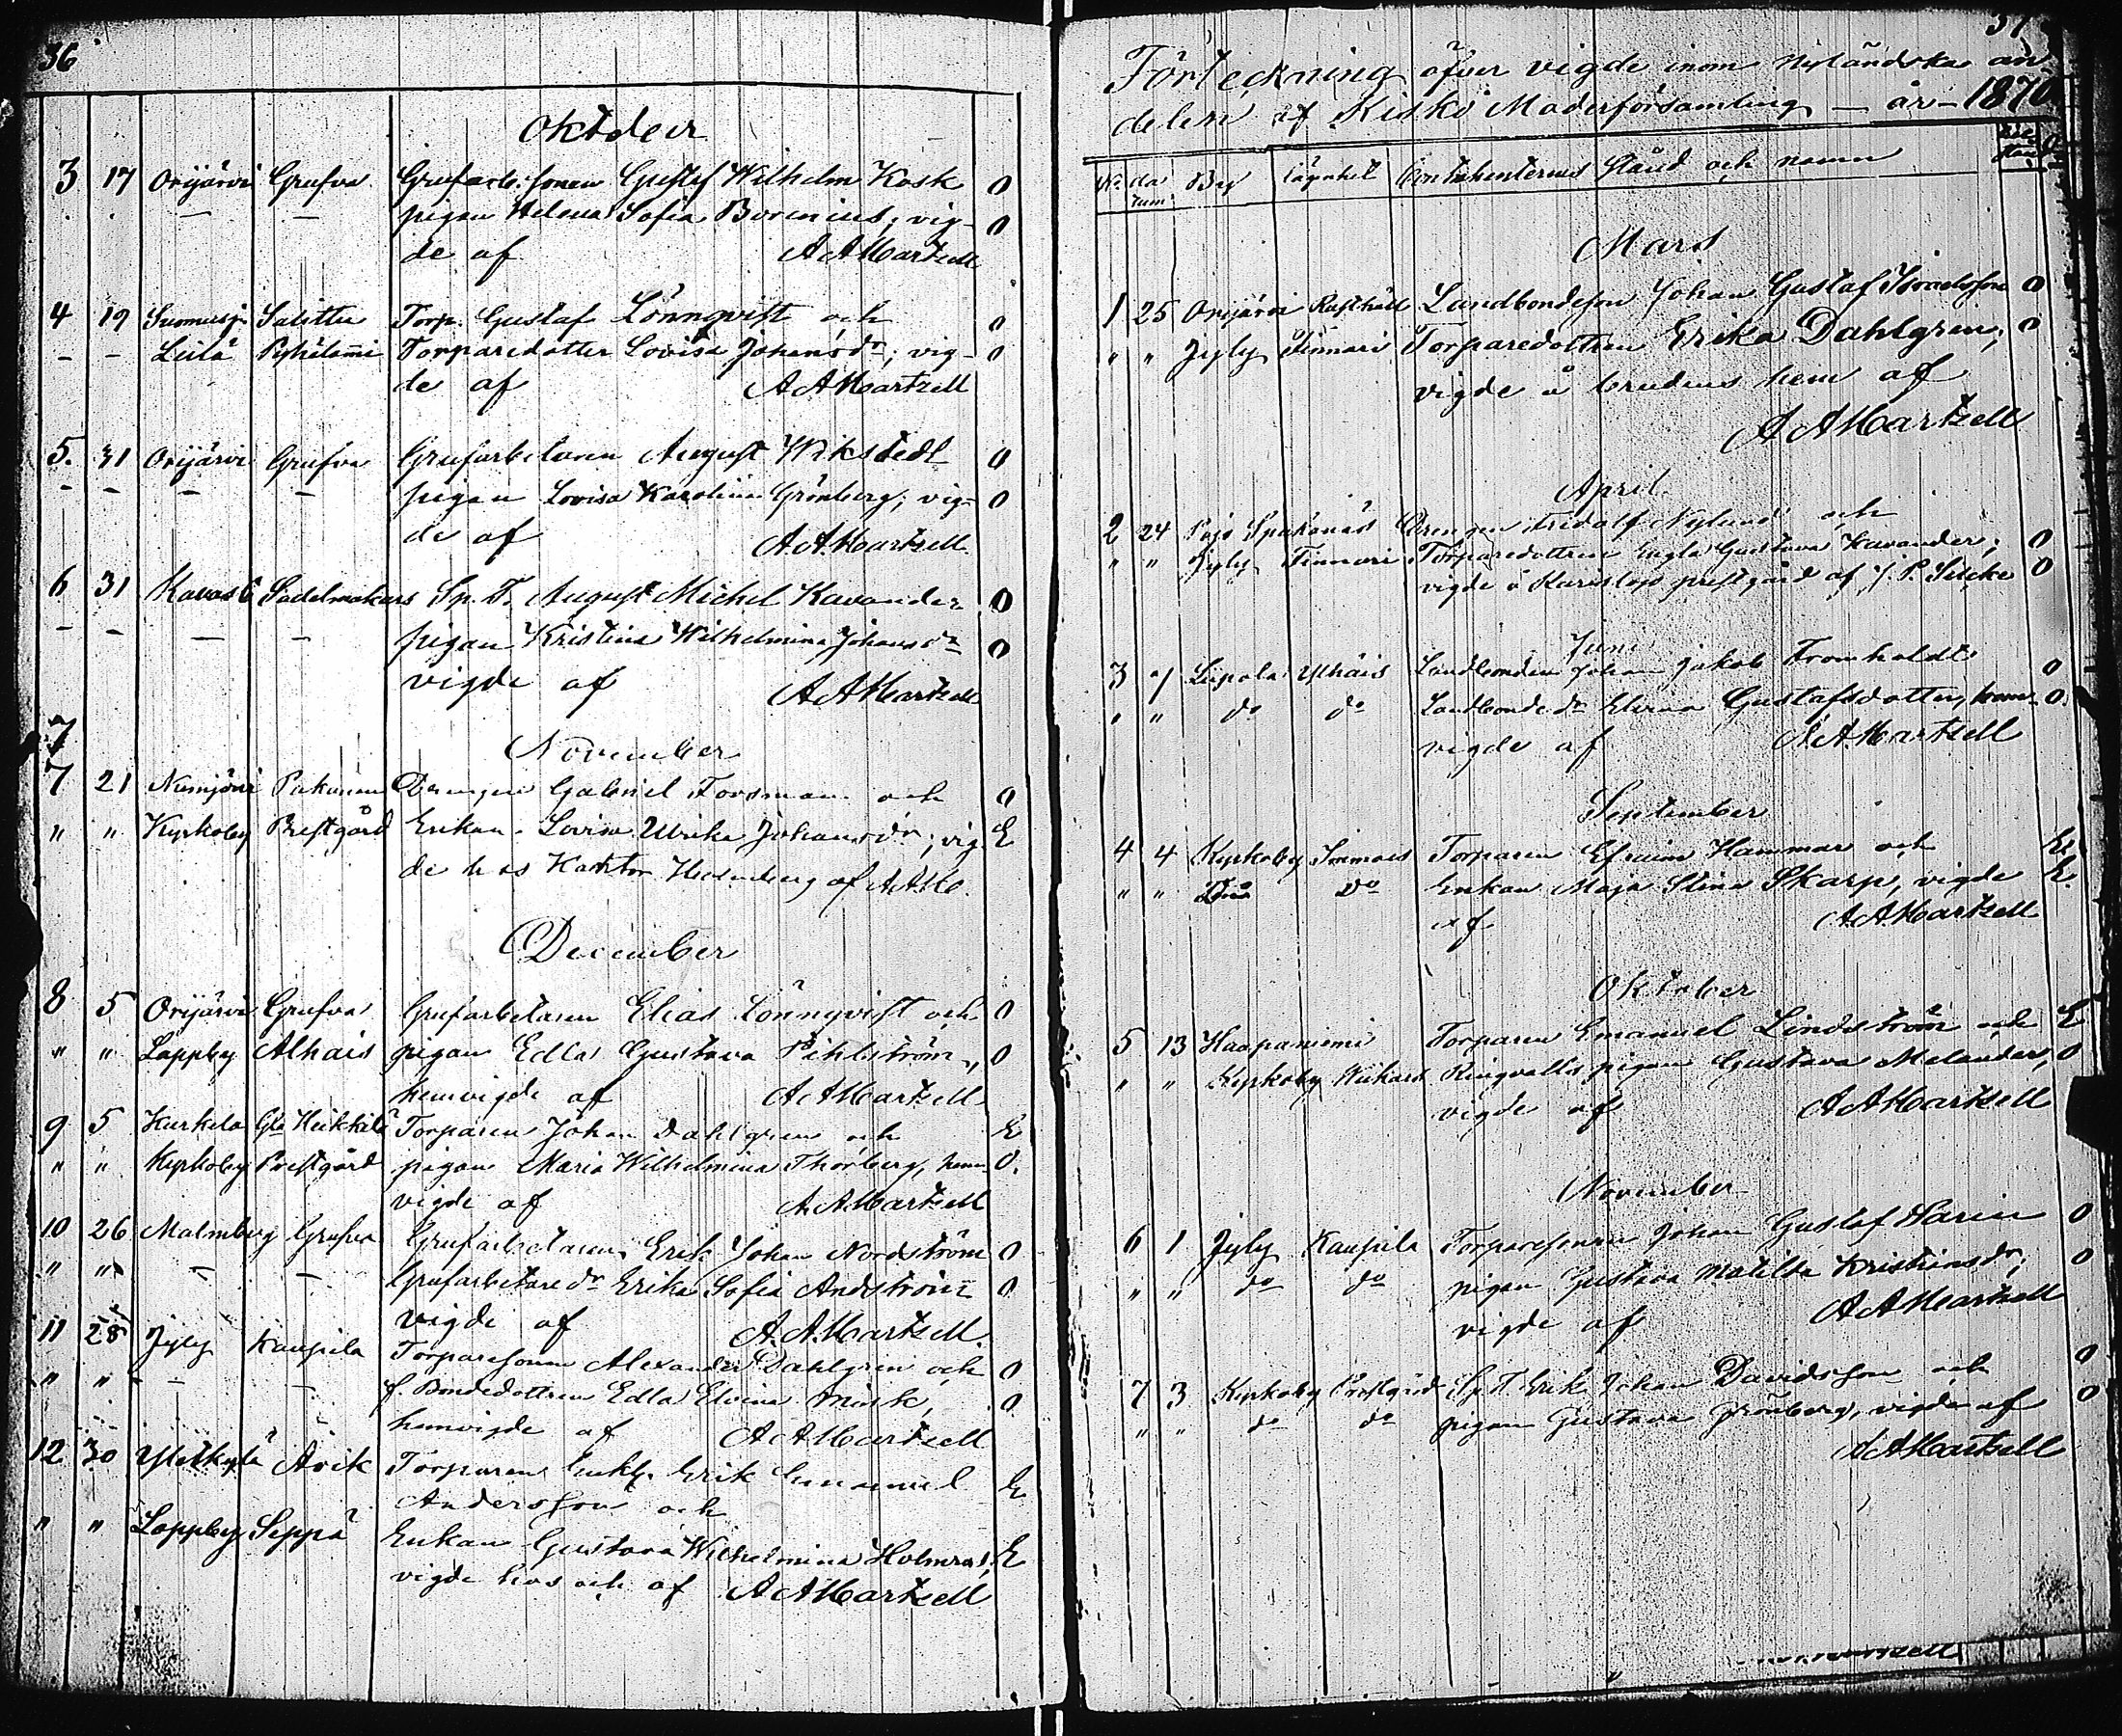 36
Oktober
3 17 Orijärvi Grufva Grufarb. sonen Gustaf Wilhelm Kosk O
— — pigan Helena Sofia Borenius; vig- O
de af AAMartzell
4 19 Suomusj. Salittu Torp. Gustaf Lönnqvist och O
- - Leilä Torparedotter Lovisa Johansdr; vig- O
de af AAMartzell
5. 31 Orijärvi Grufva Grufarbetaren August Wikstedt O
- - - - pigan Lovisa Karolina Grönberg; vig- O
de af AAMartzell
6 31 Kavasto Sadelmakars Sp. T. August Michel Kavander O
- - — - pigan Kristina Wilhelmina Johansdr O
vigde af AAMartzell
7
November
7 21 Pakanen Drengen Gabriel Forsman och O
" " Kyrkoby Prestgård Enkan Lovisa Ulrika Johansdr; vig- E
de hos Kantor af AAM.
December
8 5 Orijärvi Grufva Grufarbetaren Elias Lönnqvist och O
" " Lappby Alhais pigan Edla Gustava Pihlström, O
hemvigde af AAMartzell
9 5 Kurkela Gla Heikkilä Torparen Johan Dahlgren och E
" " Kyrkoby Prestgård pigan Maria Wilhelmina Thorberg, hem- O.
vigde af AAMartzell
10 26 Malmberg Grufva Grufarbetaren Erik Johan Nordström O
" " - — Grufarbetare dr Erika Sofia Andström O
vigde af A.AMartzell
11 28 Jyly Kaupila Torparesonen Alexander Dahlgren och O
" " - - f. Bondedottren Edla Elvina Minsk, O
hemvigde af AAMartzell
12 30 Ylikylä Avik Torparen Enkl. Erik Emanuel E
Andersson och
" " Lappby Seppä Enkan Gustava Wilhelmina Holmros, E
vigde hos och af AAMartzell
37
Förteckning öfver vigde inom Nyländska an-
delen af Kisko Moderförsamling — år — 1870
No datum By Lägenhet Kontrahenternes stånd och namn
Mars
1 25 Orijärvi Rusthåll Landbondeson Johan Gustaf Israelsson O
" " Jyly Finnari Torparedottren Erika Dahlgren; O
vigde å brudens hem af
AAMartzell
April
2 24 Pojo Spakanäs Drengen Fridolf Nylund och
" " Jyly Finnari Torparedottren Engla Gustava Kavander; O
vigde å Karislojo prestgård af J. P. Silcke O
Juni
3 Leipola Ylhäis Landbonden Johan Jakob Fromholdt O
" " do do Landbonde dr Elvina Gustafsdotter, hem- O.
vigde af AAMartzell
September
4 4 Kyrkoby Simmois Torparen Efraim Hammar och E
" " do Enkan Maja Stina Skarp, vigde E.
af A.AMartzell
Oktober
5 13 Haapaniemi Torparen Emanuel Lindström och E
" " Kyrkoby Ringvallis pigan Gustava Melander, O
vigde af AAMartzell
November
6 1 Jyly Kaupila Torparesonen Johan Gustaf Warin O
" " do do pigan Gustava Matilda Kristiansdr, O
vigde af AAMartzell
7 3 Kyrkoby Prestgård Sp. T. Erik Johan Davidsson och O
" " do do pigan Gustava Grönberg, vigde af O
AAMartzell